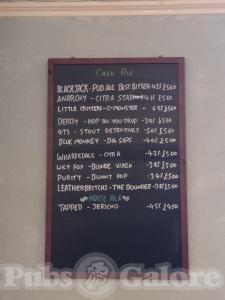 CASK ALE
BLACKJACK - PUB ALE BEST BITTER - 4.2% £5.60
ANARCHY - CITRA STAR 4.1% £5.60
LITTLE CRITTERS - C-MONSTER - 6.5% £5.60
DERBY - HOP TIL YOU DROP - 3.9% £5.60
4TS - STOUT DETECTIVES - 5.0% £5.60
BLUE MONKEY - BG SIPS - 4.0% £5.00
WHARFEDALE - CITRA - 4.2% £5.00
WILY FOX - BLONDE VIXEN - 3.8% £5.00
PURITY - BUNNY HOP - 3.4% £5.00
LEATHERBRITCHES - THE BOUNDER - 3.8% £5.00
HOUSE ALE
TAPPED - JERICHO - 4.5% £4.50
Pubs Galore